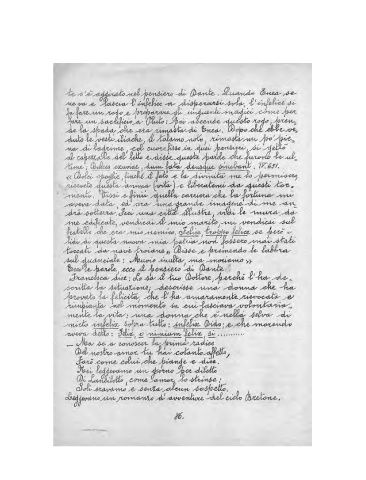 te s'è aggirato nel pensiero di Dante. Quando Enea se
ne va e lascia l'infelice a disperarsi sola, l'infelice si
fa fare un rogo e prepararsi gli unguenti magici come per
fare un sacrificio a Pluto: Poi ascende questo rogo, pren-
de la spada che era rimasta di Enea. Dopo che ebbe ve-
duto le vesti iliache, il talamo noto, rimasta un po' pie-
na di lagrime, col cuore fisso in quei pensieri si gettò
al capezzale del letto e disse queste parole che furono le ul-
time: Dulces exuviae, dum fata deusque sinebant. IV. 651.
« Dolci spoglie finchè il fato e la divinità me lo permisero,
ricevete questa anima vostra e liberatemi da questi tor-
menti. Vissi e finii quella carriera che la fortuna mi
aveva data, ed ora una grande imagine di me an-
drà sotterra. Feci una città illustre, vidi le mura da
me edificate, vendicai il mio marito, mi vendicai sul
fratello che era mio nemico, felice, troppo felice se per i
lidi di questa nuova mia patria non fossero mai stati
toccati da nave troiana. Disse e premendo le labbra
sul guanciale: Muoio inulta ma moriamo »
Ecco le parole, ecco il pensiero di Dante.
Francesca dice: Lo sa il tuo Dottore perchè l'ha de-
scritta la situazione, descrisse una donna che ha
provato la felicità, che l'ha amaramente rievocata e
rimpianta nel momento in cui lasciava volontaria-
mente la vita: una donna che è nella selva di
mirto infelice sopra tutto: infelice Dido; e che morendo
aveva detto: Felix, o nimium felix, si ..........
— Ma se a conoscer la prima radice
Del nostro amor tu hai cotanto affetto,
Farò come colui che piange e dice.
Noi leggevamo un giorno per diletto
Di Lancillotto, come l'amor lo strinse;
Soli eravamo e senza alcun sospetto.
Leggevano un romanzo di avventure del ciclo Bretone.
86.